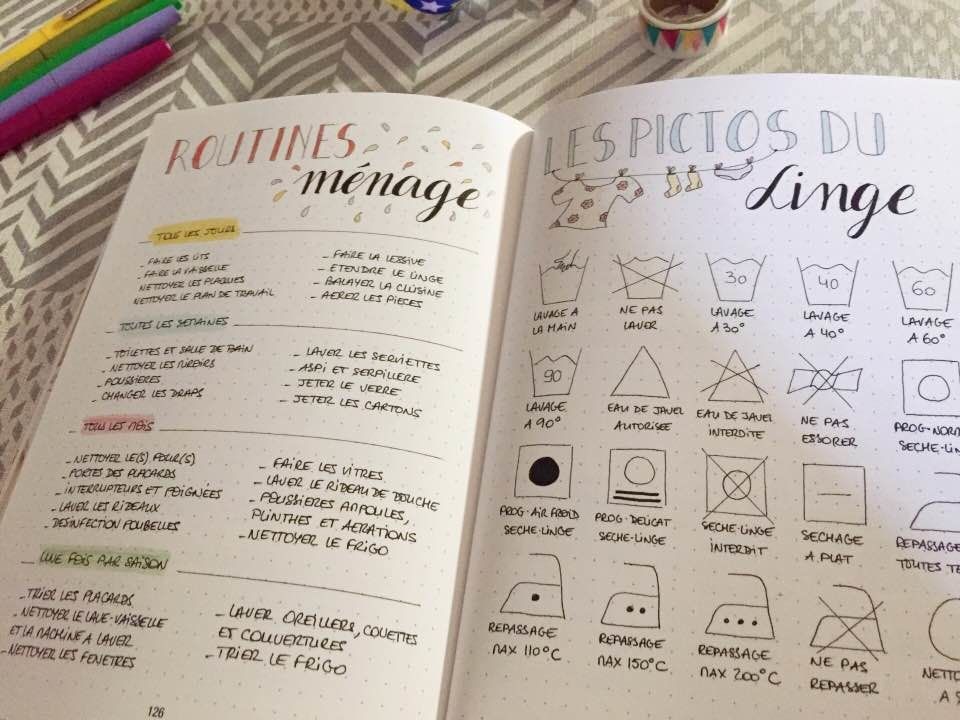 ROUTINES
ménage
TOUS LES JOURS
- FAIRE LES LITS
- FAIRE LA VAISSELLE
NETTOYER LES PLAQUES
NETTOYER LE PLAN DE TRAVAIL
- FAIRE LA LESSIVE
- ETENDRE LE LINGE
- BALAYER LA CUISINE
- AERER LES PIECES
TOUTES LES SEMAINES
- TOILETTES ET SALLE DE BAIN
- NETTOYER LES MIROIRS
- POUSSIERES
- CHANGER LES DRAPS
- LAVER LES SERVIETTES
- ASPI ET SERPILLERE
- JETER LE VERRE
- JETER LES CARTONS
TOUS LES MOIS
- NETTOYER LE(S) FOUR(S)
- PORTES DES PLACARDS
- INTERRUPTEURS ET POIGNEES
- LAVER LES RIDEAUX
- DESINFECTION POUBELLES
- FAIRE LES VITRES
- LAVER LE RIDEAU DE DOUCHE
- POUSSIERES AMPOULES,
PLINTHES ET AERATIONS
- NETTOYER LE FRIGO
UNE FOIS PAR SAISON
- TRIER LES PLACARDS
- NETTOYER LE LAVE-VAISSELLE
ET LA MACHINE A LAVER
- NETTOYER LES FENETRES
- LAVER OREILLERS, COUETTES
ET COUVERTURES
- TRIER LE FRIGO
126
LES PICTOS DU
Linge
30 40 60
LAVAGE A
LA MAIN
NE PAS
LAVER
LAVAGE
A 30°
LAVAGE
A 40°
LAVAGE
A 60°
90
LAVAGE
A 90°
EAU DE JAVEL
AUTORISEE
EAU DE JAVEL
INTERDITE
NE PAS
ESSORER
PROG-NORM
SECHE-LIN
PROG-AIR FROID
SECHE-LINGE
PROG-DELICAT
SECHE-LINGE
SECHE-LINGE
INTERDIT
SECHAGE
A PLAT
REPASSAGE
TOUTES TE
REPASSAGE
MAX 110°C
REPASSAGE
MAX 150°C
REPASSAGE
MAX 200°C
NE PAS
REPASSER
NETTO
A S